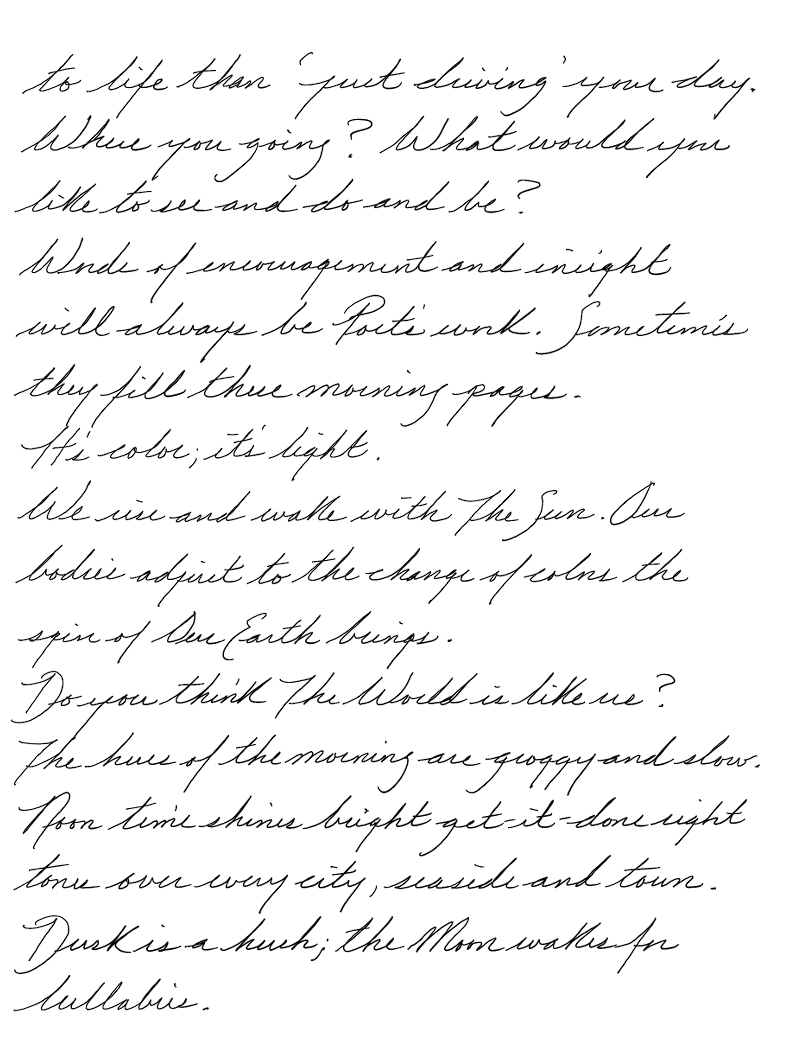 to life than 'just driving' your day.
Where you going? What would you
like to see and do and be?
Words of encouragement and insight
will always be Poet's work. Sometimes
they fill these morning pages.
It's color; it's light.
We rise and wake with The Sun. Our
bodies adjust to the change of colors the
spin of Our Earth brings.
Do you think The World is like us?
The hues of the morning are groggy and slow.
Noon time shines bright get-it-done right
tones over every city, seaside and town.
Dusk is a hush; the Moon wakes for
lullabies.